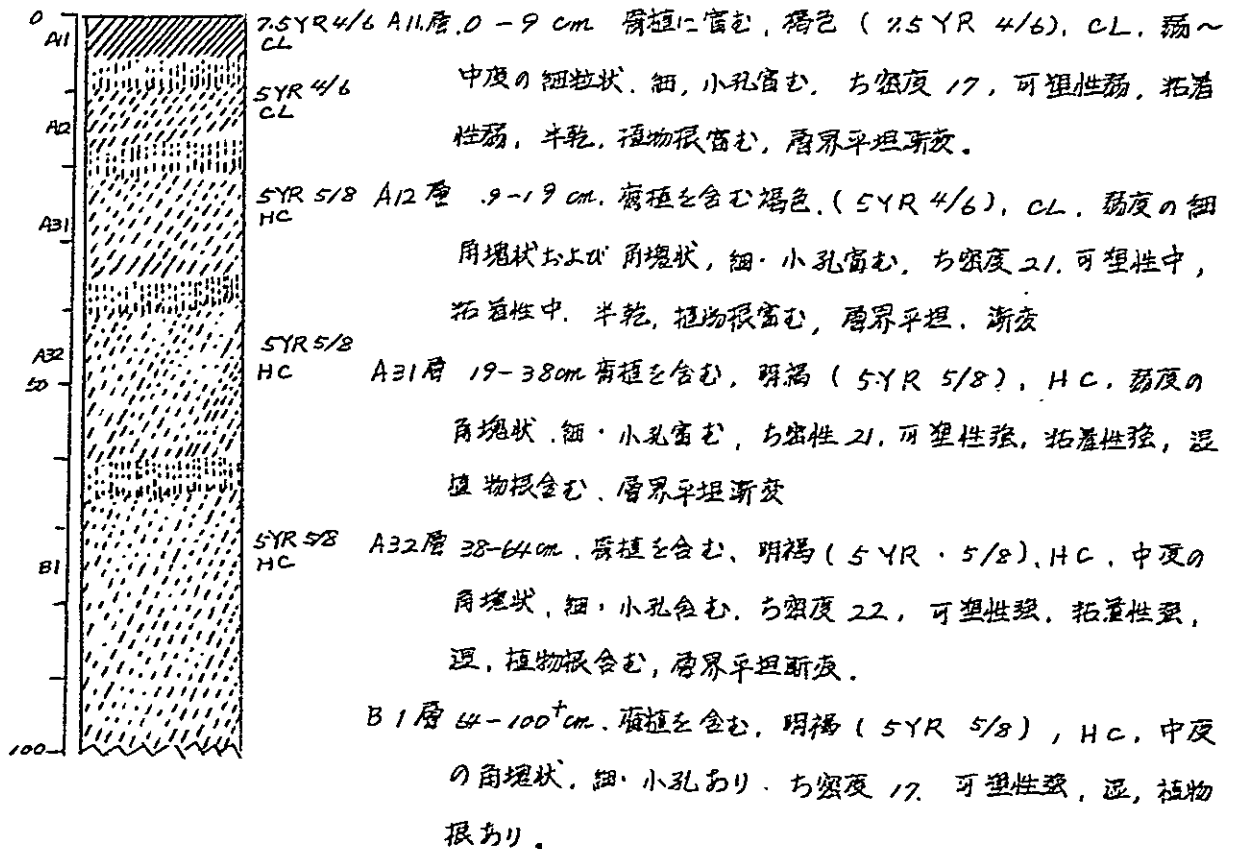 0
A11
A2
A31
A32
50
B1
100
7.5YR 4/6
CL
5YR 4/6
CL
5YR 5/8
HC
5YR 5/8
HC
5YR 5/8
HC
A11層 0-9 cm 腐植に富む, 褐色 (7.5YR 4/6), CL, 弱~
中度の細粒状, 細, 小孔富む, ち密度 17, 可塑性弱, 粘着
性弱, 半乾, 植物根富む, 層界平坦漸変。
A12層 9-19 cm. 腐植を含む褐色. (5YR 4/6), CL. 弱度の細
角塊状および角塊状, 細・小孔富む, ち密度 21. 可塑性中,
粘着性中. 半乾, 植物根富む, 層界平坦. 漸変
A31層 19-38cm 腐植を含む, 明褐 (5YR 5/8), HC. 弱度の
角塊状. 細・小孔富む, ち密性 21, 可塑性強, 粘着性強, 湿
植物根含む. 層界平坦漸変
A32層 38-64cm. 腐植を含む, 明褐 (5YR・5/8), HC, 中度の
角塊状, 細・小孔含む, ち密度 22, 可塑性強, 粘着性強,
湿, 植物根含む, 層界平坦漸変.
B1層 64-100⁺cm. 腐植を含む, 明褐 (5YR 5/8), HC. 中度
の角塊状. 細・小孔あり. ち密度 17. 可塑性強, 湿, 植物
根あり.